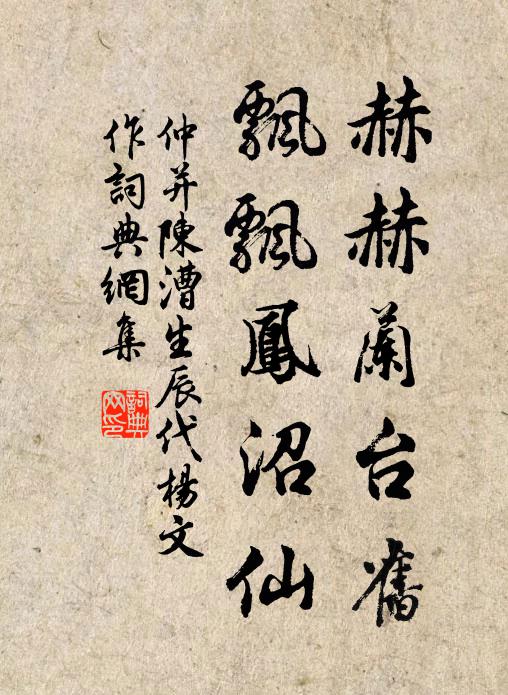 赫赫蘭台舊
飄飄鳳沼仙
仲并陳漕生辰代楊文
作詞典網集
詞典網印